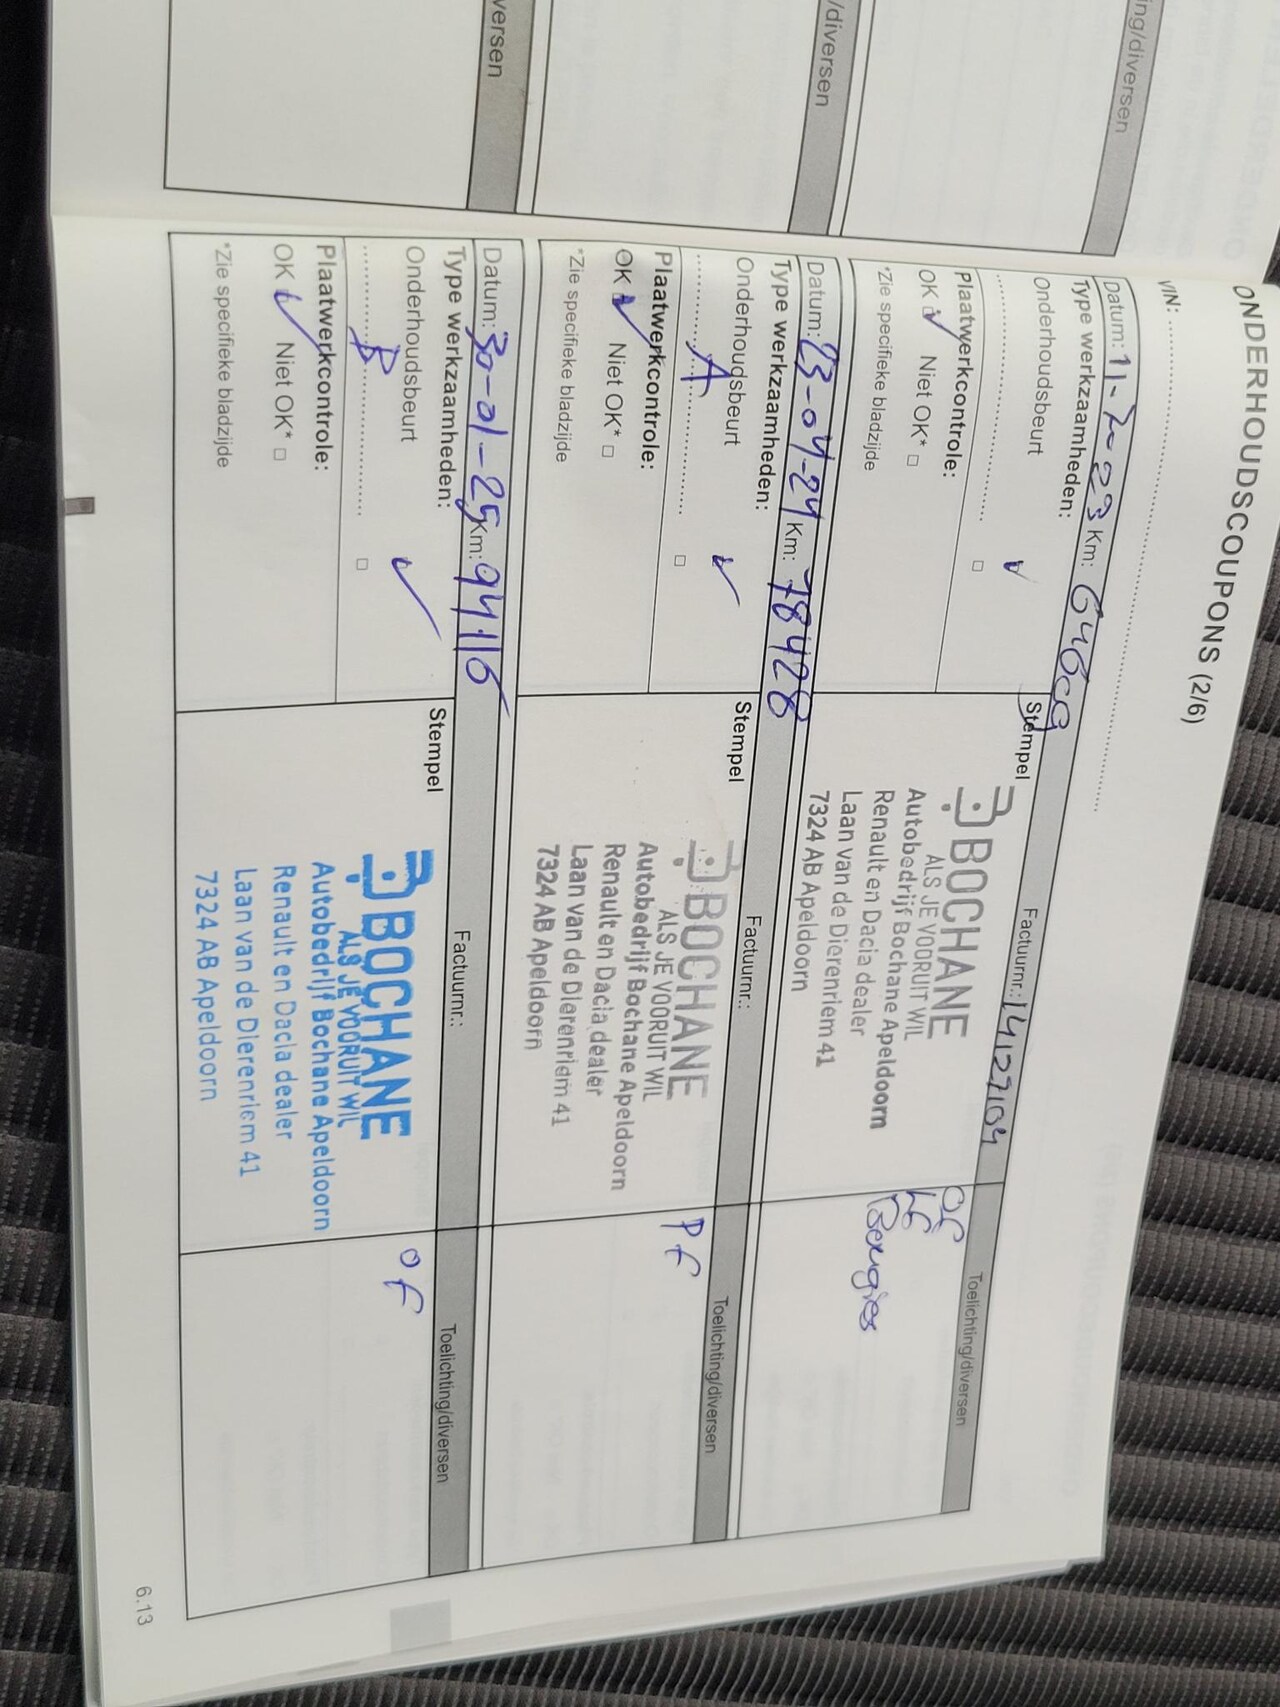 /diversen
/diversen
ing/diversen
ONDERHOUDSCOUPONS (2/6)
VIN:
Datum: 11-2-23 Km:
Type werkzaamheden:
Onderhoudsbeurt
Plaatwerkcontrole:
OK Niet OK*
*Zie specifieke bladzijde
Factuurnr.: 14127104
Stempel
BOCHANE
ALS JE VOORUIT WIL
Autobedrijf Bochane Apeldoorn
Renault en Dacia dealer
Laan van de Dierenriem 41
7324 AB Apeldoorn
Toelichting/diversen
OF
LF
Bougies
Datum: 23-04-24 Km: 78428
Type werkzaamheden:
Onderhoudsbeurt
A
Plaatwerkcontrole:
OK Niet OK*
*Zie specifieke bladzijde
Factuurnr.:
Stempel
BOCHANE
ALS JE VOORUIT WIL
Autobedrijf Bochane Apeldoorn
Renault en Dacia dealer
Laan van de Dierenriem 41
7324 AB Apeldoorn
Toelichting/diversen
PF
Datum: 30-01-25 Km: 94116
Type werkzaamheden:
Onderhoudsbeurt
B
Plaatwerkcontrole:
OK Niet OK*
*Zie specifieke bladzijde
Factuurnr.:
Stempel
BOCHANE
ALS JE VOORUIT WIL
Autobedrijf Bochane Apeldoorn
Renault en Dacia dealer
Laan van de Dierenriem 41
7324 AB Apeldoorn
Toelichting/diversen
OF
6.13